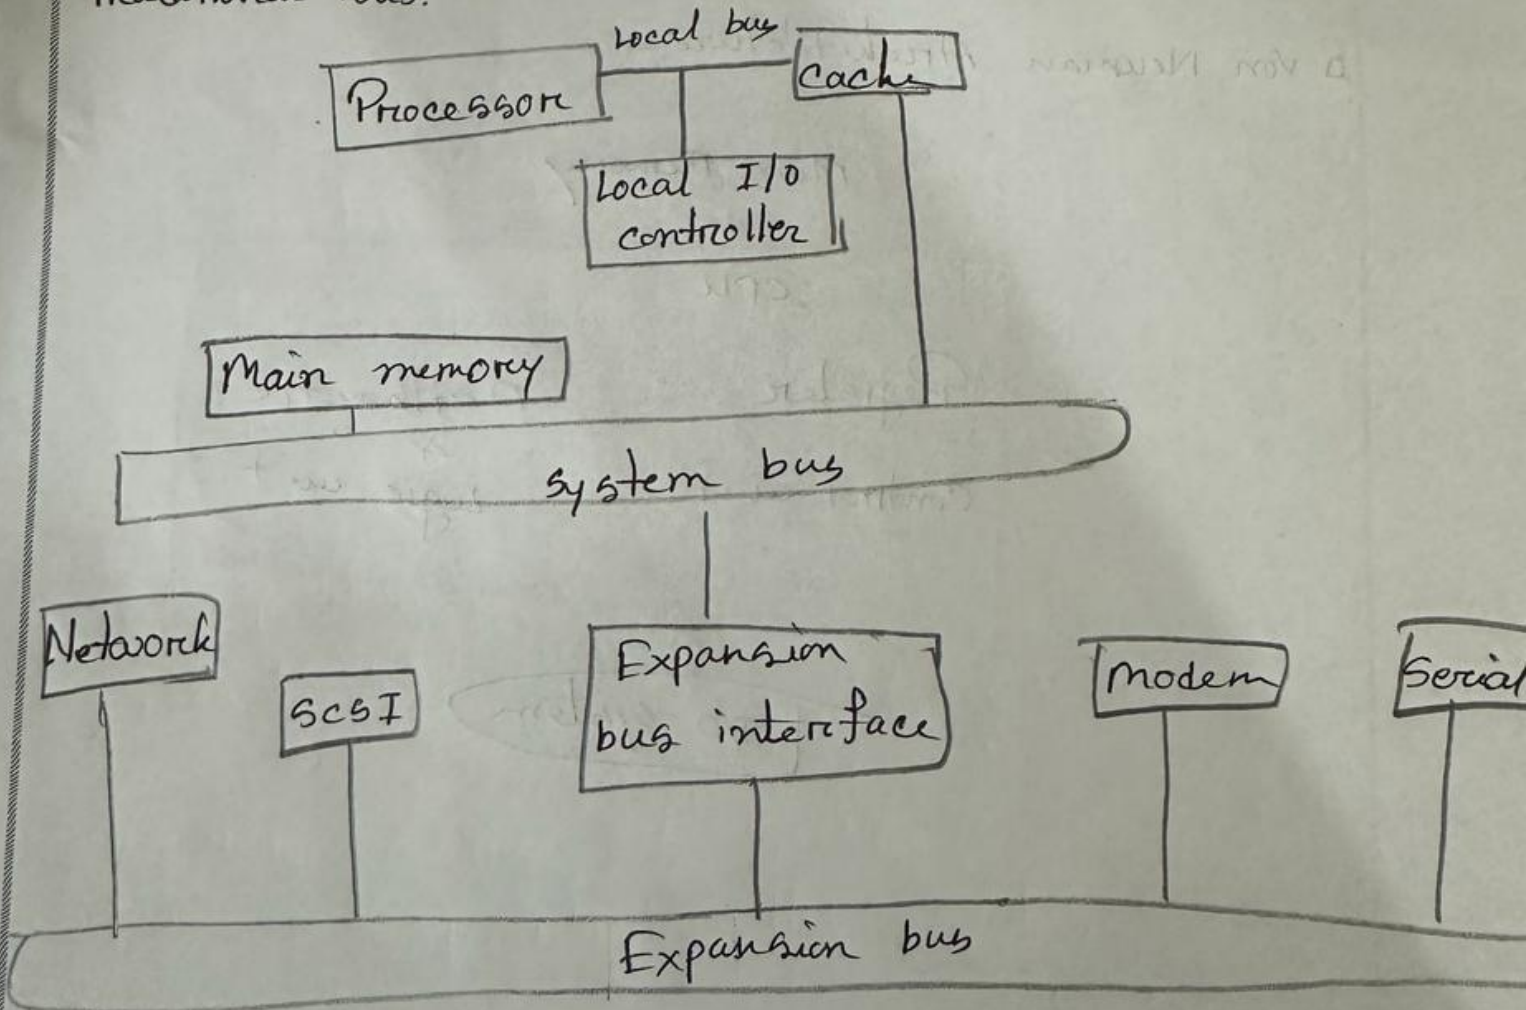 bus.
Local bus
Processor
Cache
Local I/O
controller
Main memory
system bus
Network
SCSI
Expansion
bus interface
Modem
Serial
Expansion bus